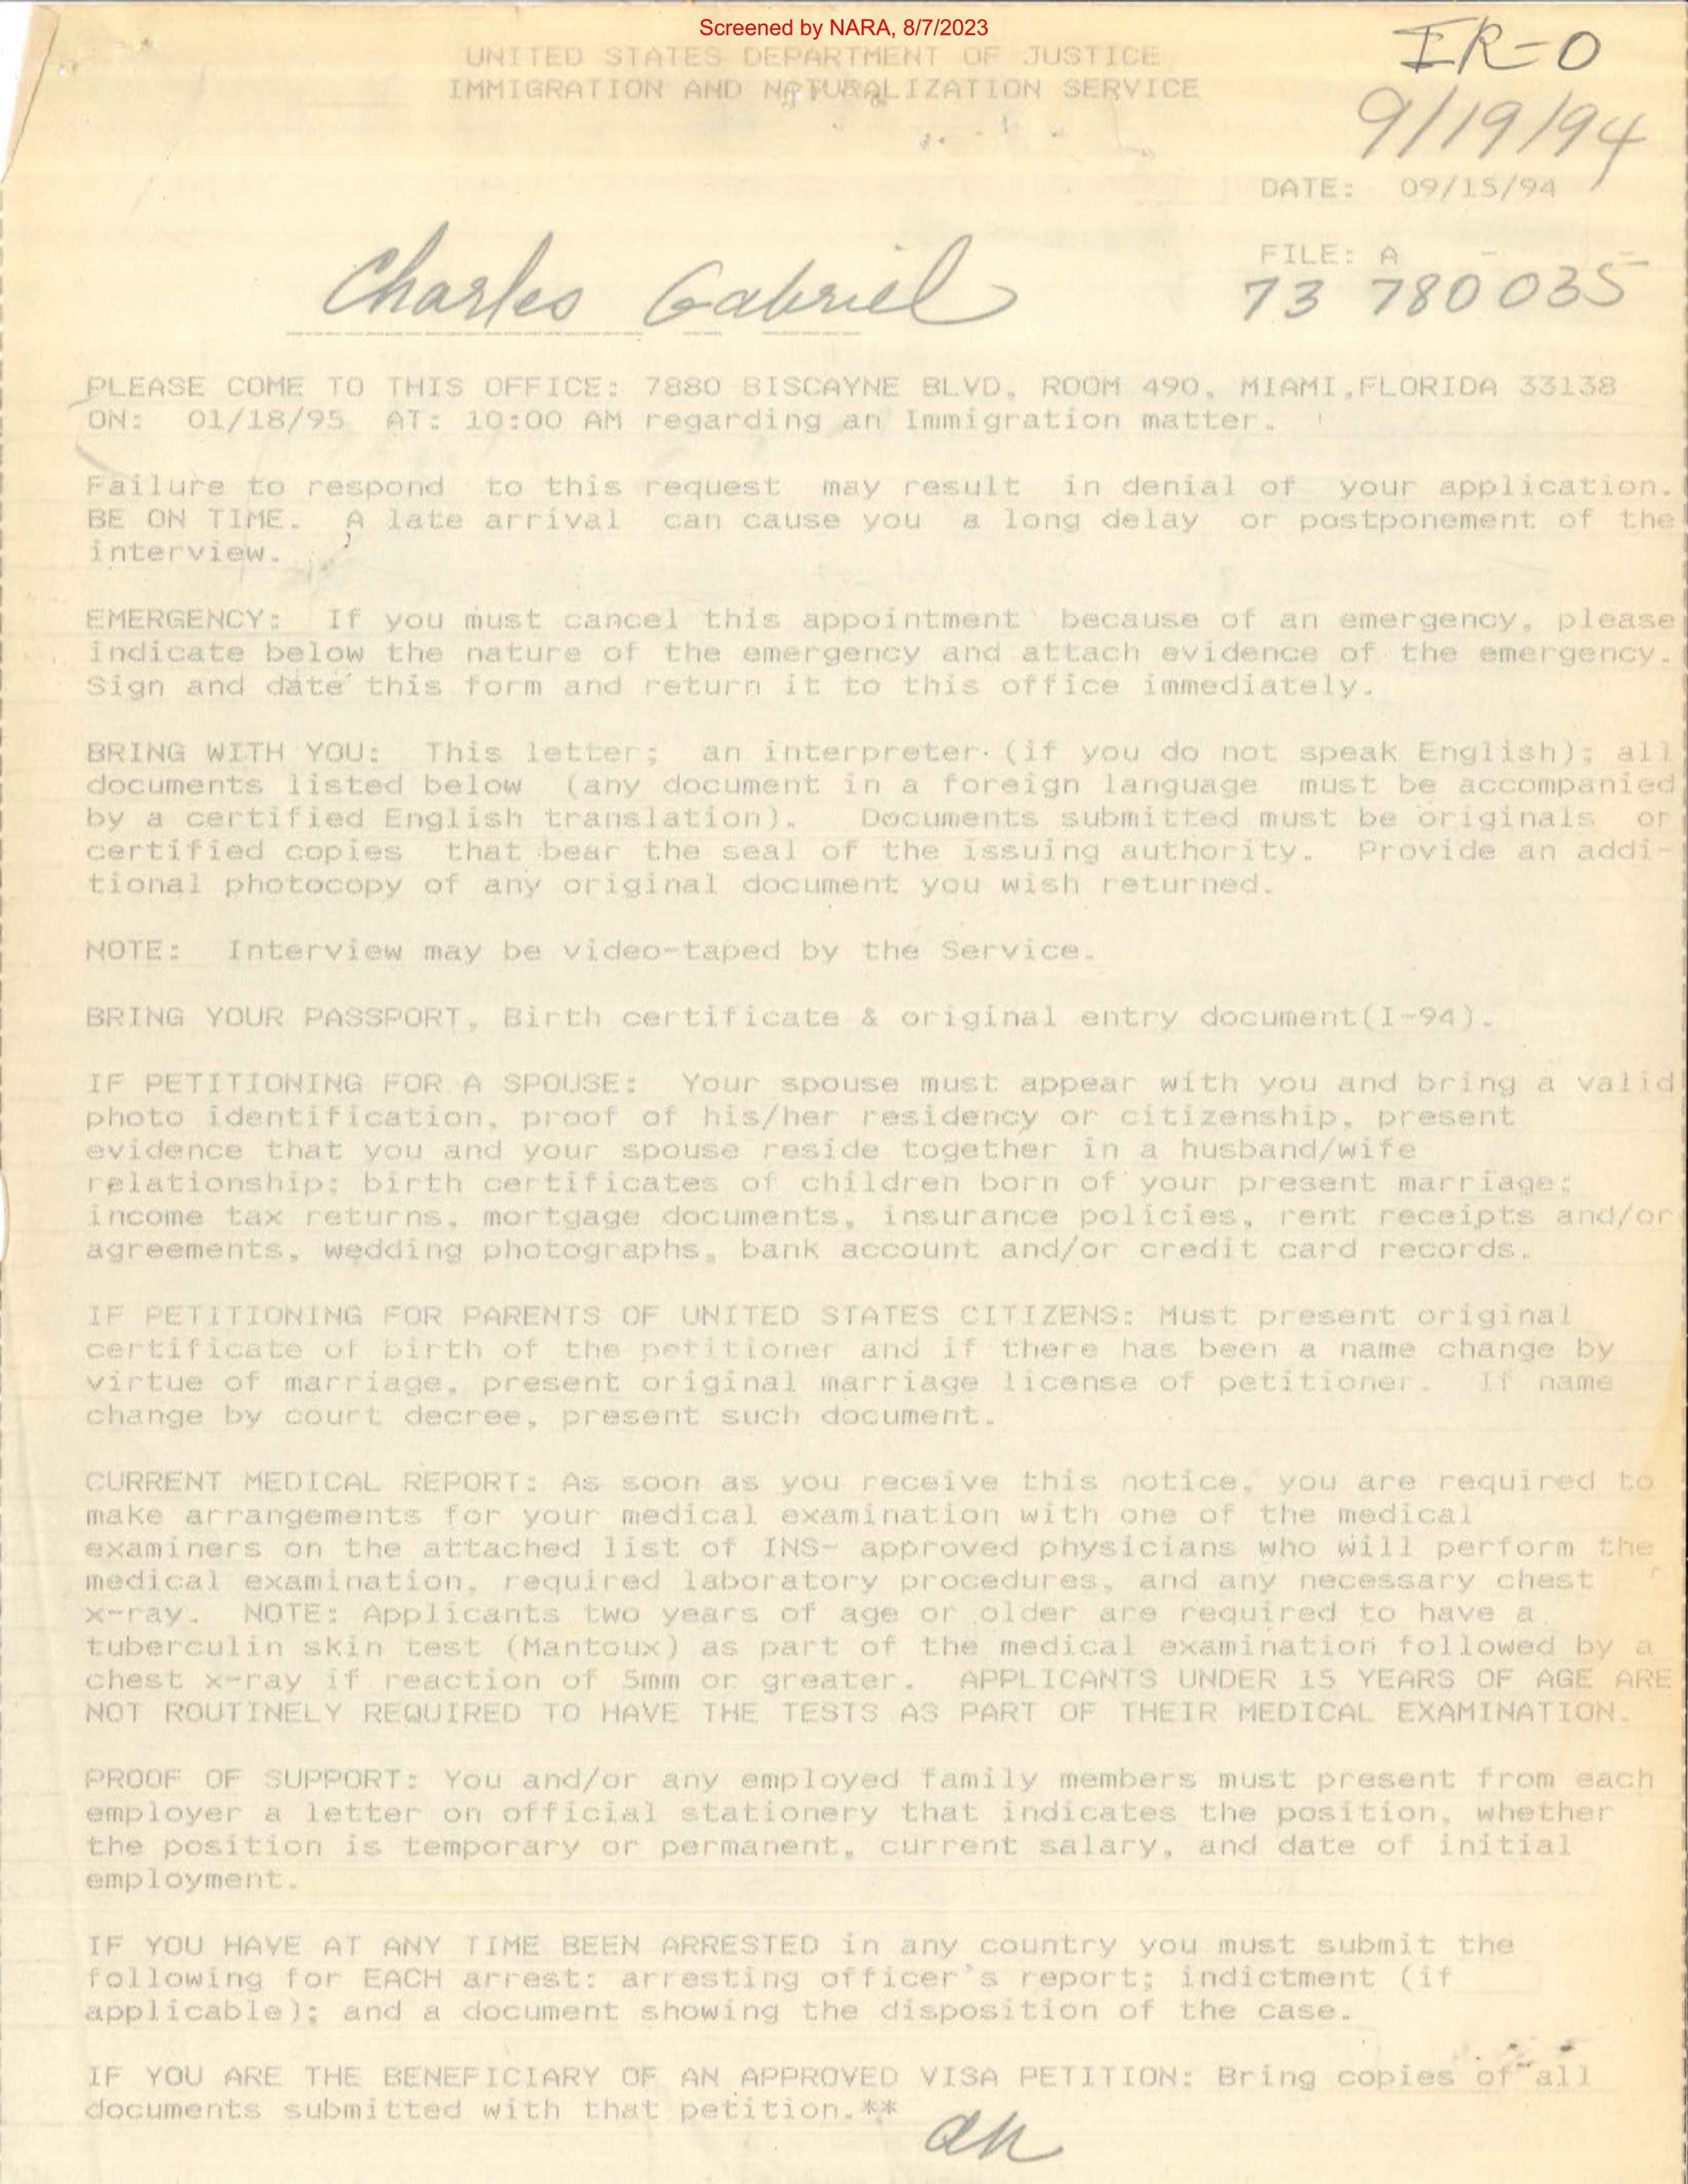 Screened by NARA, 8/7/2023
IR-0
UNITED STATES DEPARTMENT OF JUSTICE
IMMIGRATION AND NATURALIZATION SERVICE
9/19/94
DATE: 09/15/94
Charles Gabriel
FILE: A
73 780 035
PLEASE COME TO THIS OFFICE: 7880 BISCAYNE BLVD, ROOM 490, MIAMI,FLORIDA 33138
ON: 01/18/95 AT: 10:00 AM regarding an Immigration matter.
Failure to respond to this request may result in denial of your application.
BE ON TIME. A late arrival can cause you a long delay or postponement of the
interview.
EMERGENCY: If you must cancel this appointment because of an emergency, please
indicate below the nature of the emergency and attach evidence of the emergency.
Sign and date this form and return it to this office immediately.
BRING WITH YOU: This letter; an interpreter (if you do not speak English); all
documents listed below (any document in a foreign language must be accompanied
by a certified English translation). Documents submitted must be originals or
certified copies that bear the seal of the issuing authority. Provide an addi-
tional photocopy of any original document you wish returned.
NOTE: Interview may be video-taped by the Service.
BRING YOUR PASSPORT, Birth certificate & original entry document(I-94).
IF PETITIONING FOR A SPOUSE: Your spouse must appear with you and bring a valid
photo identification, proof of his/her residency or citizenship, present
evidence that you and your spouse reside together in a husband/wife
relationship; birth certificates of children born of your present marriage;
income tax returns, mortgage documents, insurance policies, rent receipts and/or
agreements, wedding photographs, bank account and/or credit card records.
IF PETITIONING FOR PARENTS OF UNITED STATES CITIZENS: Must present original
certificate of birth of the petitioner and if there has been a name change by
virtue of marriage, present original marriage license of petitioner. If name
change by court decree, present such document.
CURRENT MEDICAL REPORT: As soon as you receive this notice, you are required to
make arrangements for your medical examination with one of the medical
examiners on the attached list of INS- approved physicians who will perform the
medical examination, required laboratory procedures, and any necessary chest
x-ray. NOTE: Applicants two years of age or older are required to have a
tuberculin skin test (Mantoux) as part of the medical examination followed by a
chest x-ray if reaction of 5mm or greater. APPLICANTS UNDER 15 YEARS OF AGE ARE
NOT ROUTINELY REQUIRED TO HAVE THE TESTS AS PART OF THEIR MEDICAL EXAMINATION.
PROOF OF SUPPORT: You and/or any employed family members must present from each
employer a letter on official stationery that indicates the position, whether
the position is temporary or permanent, current salary, and date of initial
employment.
IF YOU HAVE AT ANY TIME BEEN ARRESTED in any country you must submit the
following for EACH arrest: arresting officer's report; indictment (if
applicable); and a document showing the disposition of the case.
IF YOU ARE THE BENEFICIARY OF AN APPROVED VISA PETITION: Bring copies of all
documents submitted with that petition.**